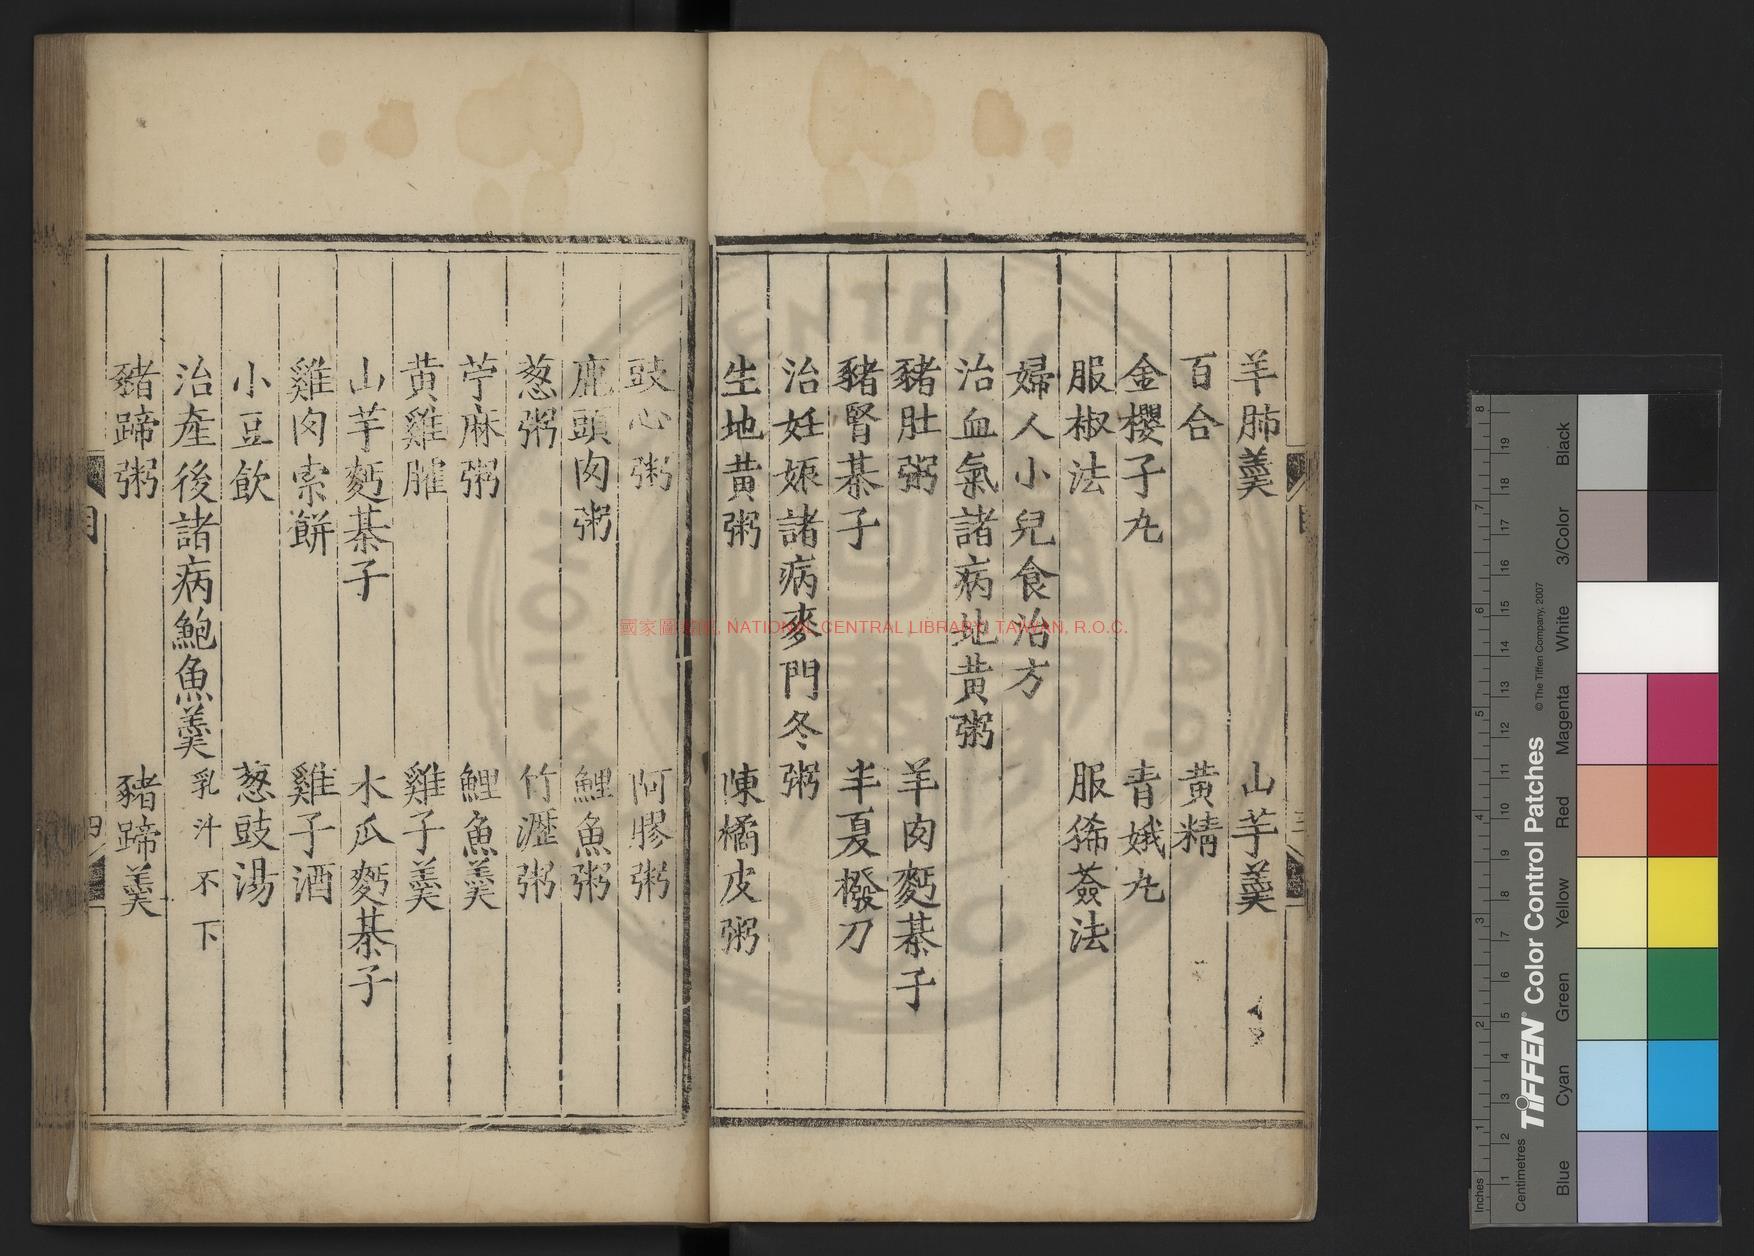 羊肺羹　山芋羹
百合　黃精
金櫻子丸　青娥丸
服椒法　服豨薟法
婦人小兒食治方
治血氣諸病地黃粥
豬肚粥　羊肉麪棊子
豬腎棊子　半夏撥刀
治妊娠諸病麥門冬粥
生地黃粥　陳橘皮粥
豉心粥　阿膠粥
鹿頭肉粥　鯉魚粥
葱粥　竹瀝粥
苧麻粥　鯉魚羹
黃雞臛　雞子羹
山芋麪棊子　木瓜麪棊子
雞肉索餅　雞子酒
小豆飲　葱豉湯
治產後諸病鮑魚羹　乳汁不下
豬蹄粥　豬蹄羹
目　四
國家圖書館, NATIONAL CENTRAL LIBRARY, TAIWAN, R.O.C.
TIFFEN Color Control Patches
© The Tiffen Company, 2007
Blue Cyan Green Yellow Red Magenta White 3/Color Black
Centimetres
Inches